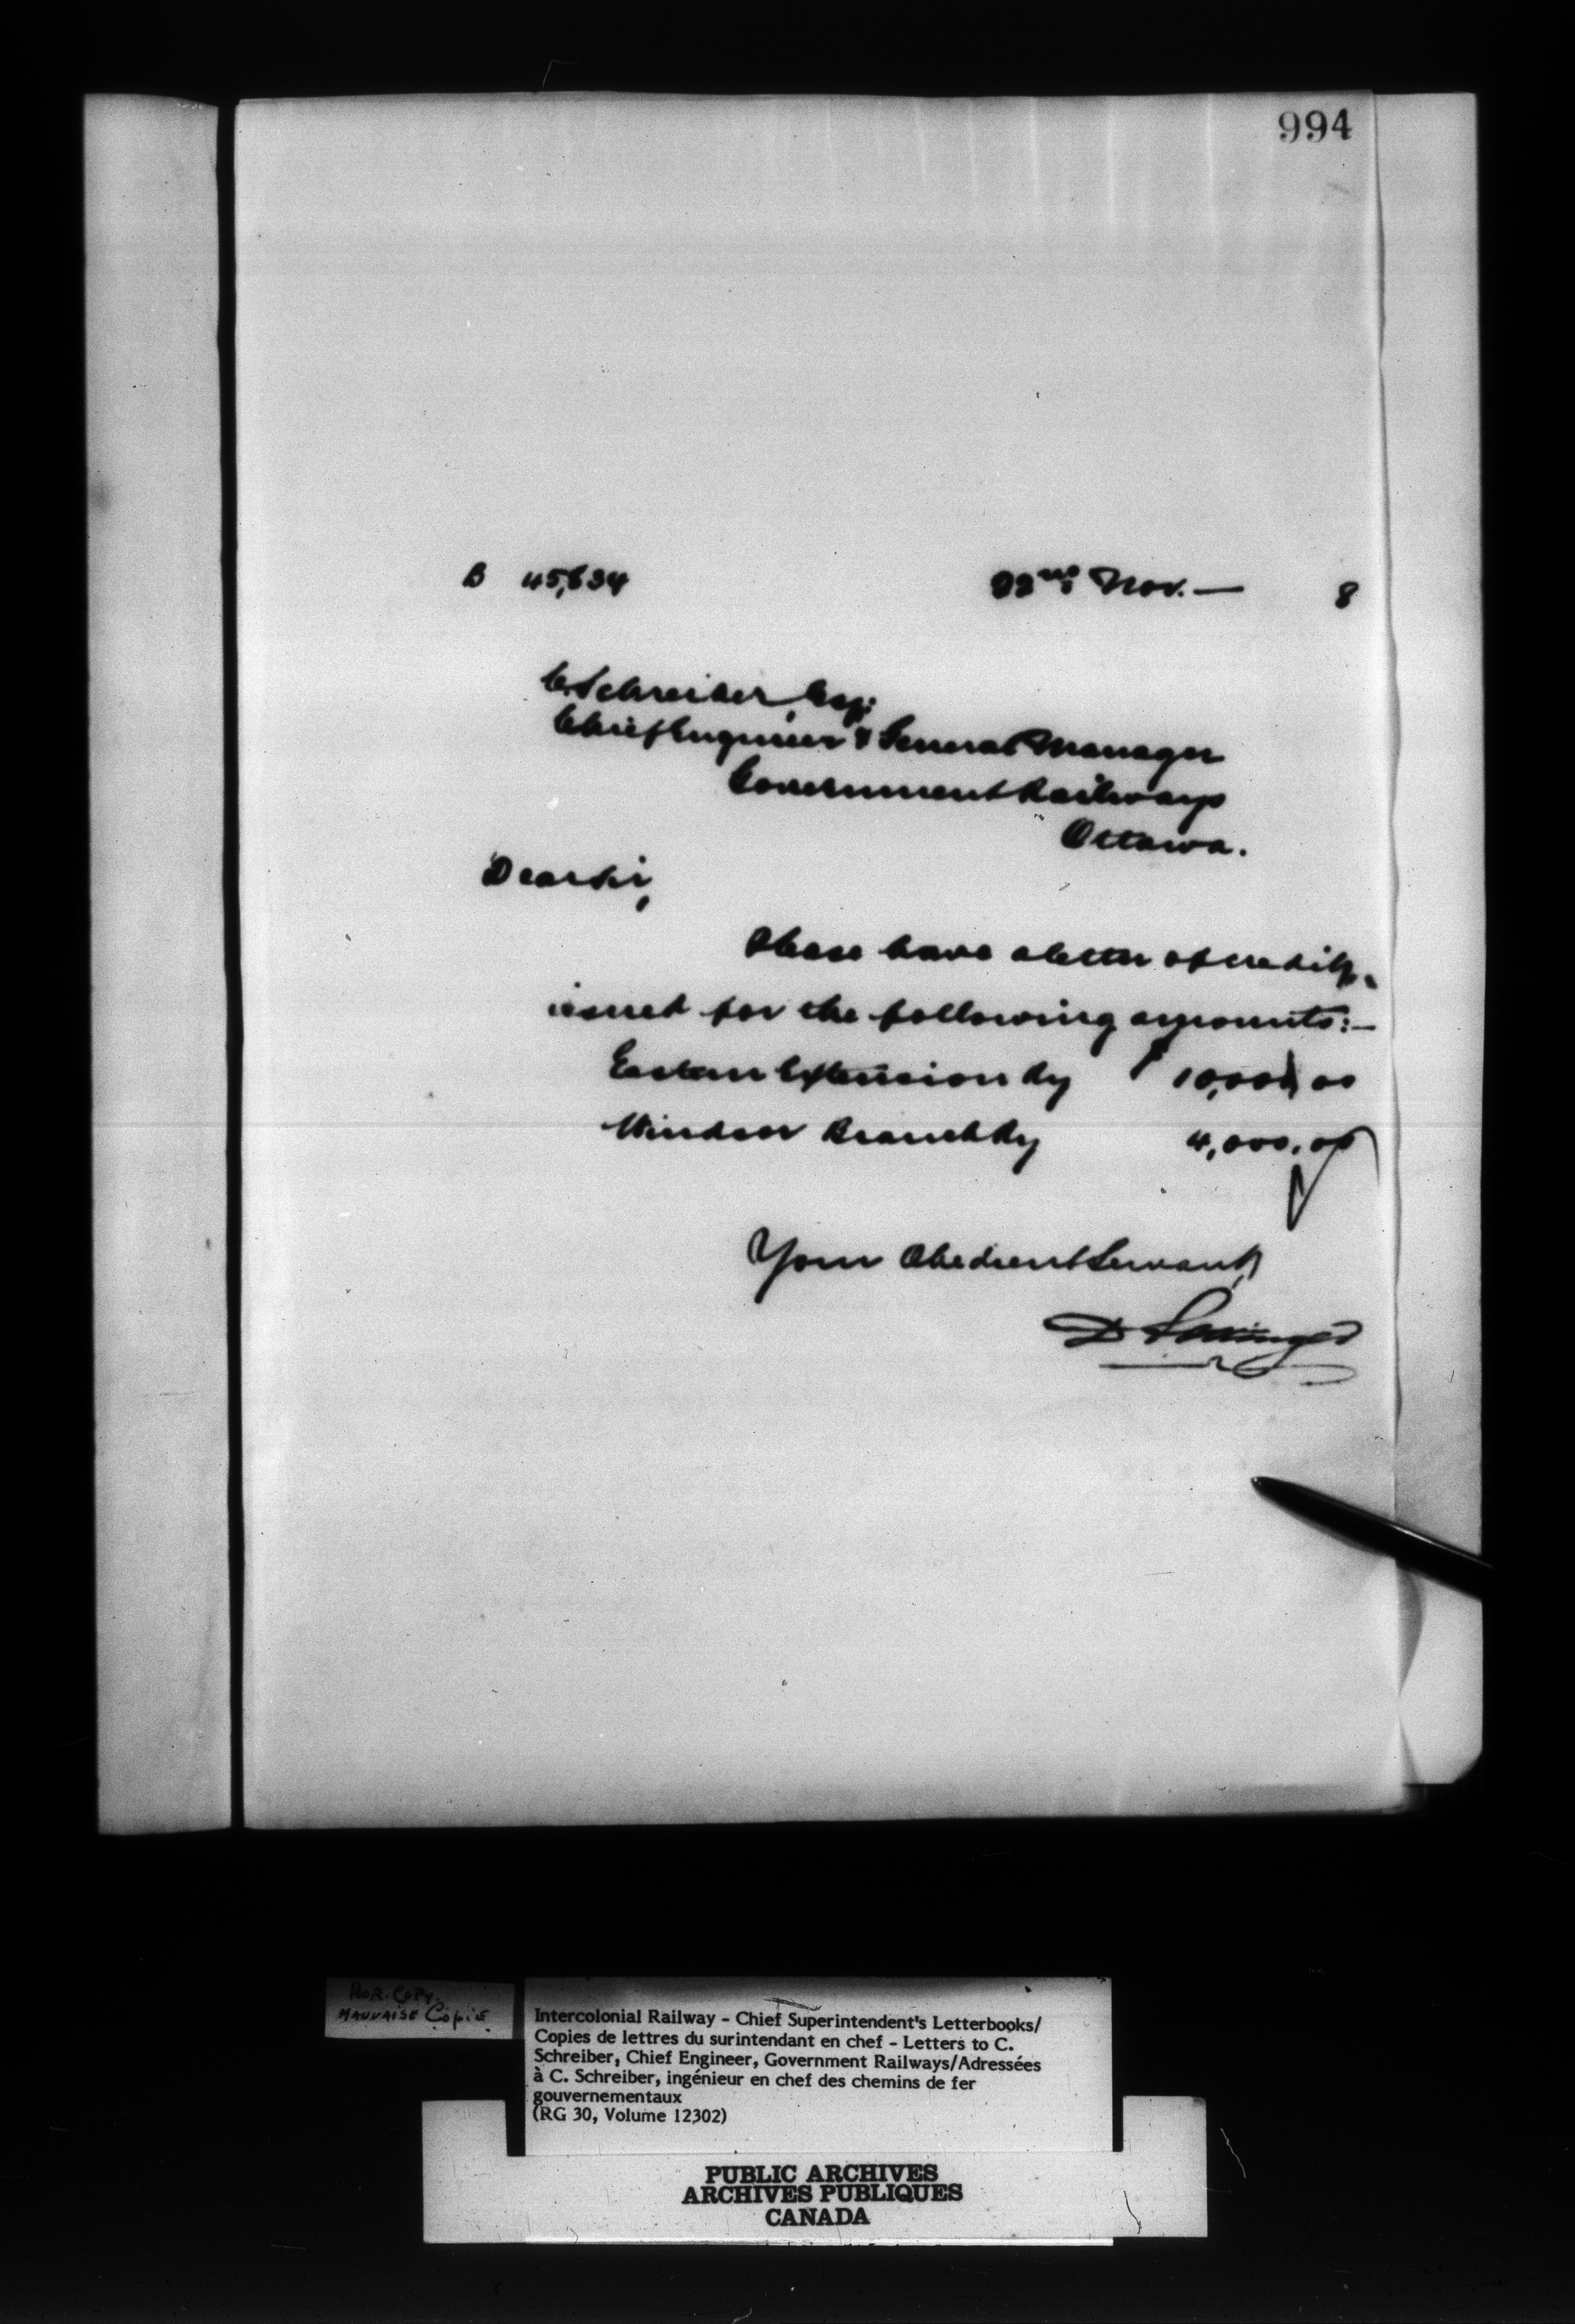 994
B 45,634 22nd Nov. — 8
C. Schreiber, Esq:
Chief Engineer & General Manager
Government Railways
Ottawa.
Dear Sir,
Please have a letter of credit
issued for the following amounts:—
Eastern Extension Ry $ 10,000 00
Windsor Branch Ry 4,000.00
Your Obedient Servant,
D Pottinger
POOR COPY.
MAUVAISE Copie
Intercolonial Railway - Chief Superintendent's Letterbooks/
Copies de lettres du surintendant en chef - Letters to C.
Schreiber, Chief Engineer, Government Railways/Adressées
à C. Schreiber, ingénieur en chef des chemins de fer
gouvernementaux
(RG 30, Volume 12302)
PUBLIC ARCHIVES
ARCHIVES PUBLIQUES
CANADA